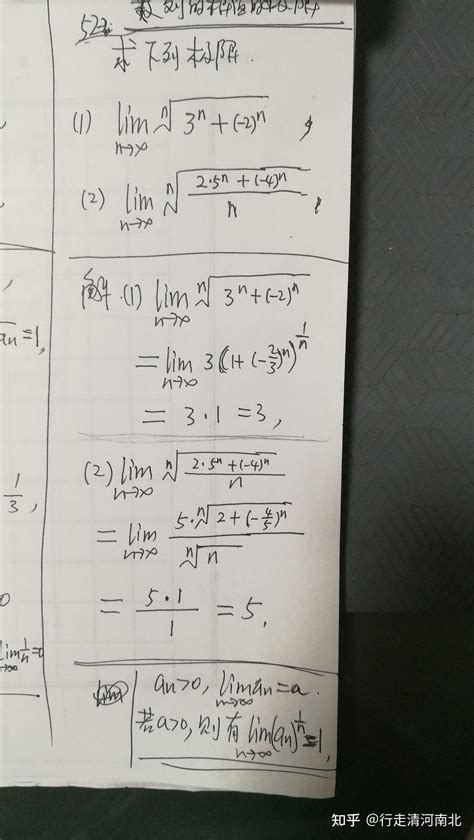 数列的极值的极限
522.
求下列极限.
(1) lim n→∞ ⁿ√(3ⁿ+(-2)ⁿ) ,
(2) lim n→∞ ⁿ√((2·5ⁿ+(-4)ⁿ)/n) .
解.(1) lim n→∞ ⁿ√(3ⁿ+(-2)ⁿ)
= lim n→∞ 3(1+(-2/3)ⁿ)^(1/n)
= 3·1 = 3,
(2) lim n→∞ ⁿ√((2·5ⁿ+(-4)ⁿ)/n)
= lim n→∞ (5·ⁿ√(2+(-4/5)ⁿ))/(ⁿ√n)
= (5·1)/1 = 5,
aₙ>0, lim n→∞ aₙ=a.
若a>0,则有 lim n→∞ (aₙ)^(1/n)=1,
aₙ=1,
1/3,
lim n→∞ 1/n=0
知乎 @行走清河南北